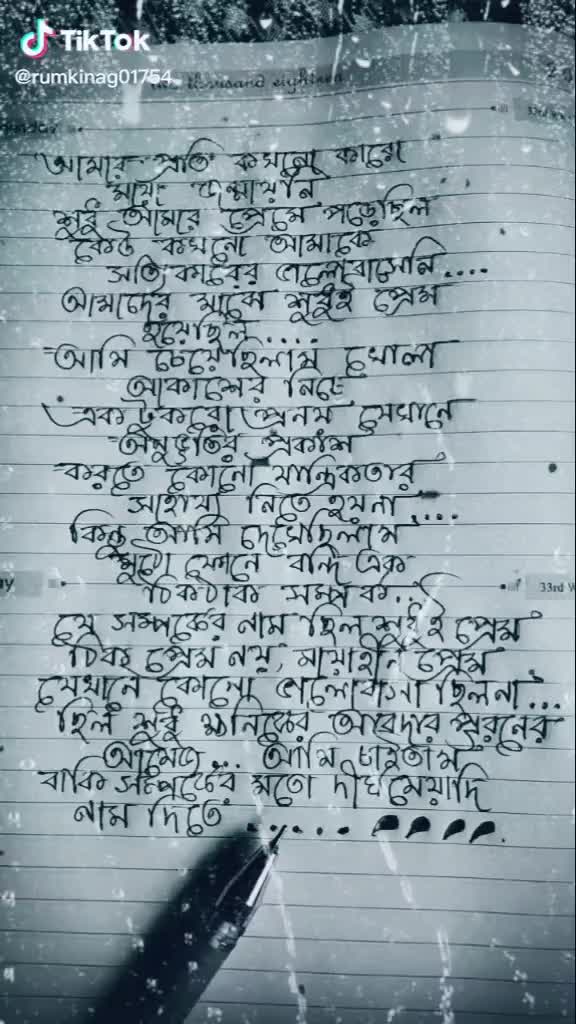 TikTok
@rumkinag01754
two thousand eighteen
আমার প্রতি কখনো কারো
মায়া জন্মায়নি
শুধু আমার প্রেমে পড়েছিল
কেউ কখনো আমাকে
সত্যিকারের ভালোবাসেনি....
আমাদের মাঝে শুধুই প্রেম
হয়েছিল....
আমি চেয়েছিলাম খোলা
আকাশের নিচে
একটুকরো প্রনয় যেখানে
অনুভূতির প্রকাশ
করতে কোনো যান্ত্রিকতার
সাহায্য নিতে হয়না....
কিন্তু আমি দেখেছিলাম
মুঠো ফোনে বন্দি এক
ঠিকঠাক সম্পর্ক...
33rd W
যে সম্পর্কের নাম ছিল শুধুই প্রেম
ঠিক প্রেম নয়, মায়াহীন প্রেম
যেখানে কোনো ভালোবাসা ছিলনা...
ছিল শুধু ক্ষনিকের আবদার পূরনের
আমেজ... আমি চাইতাম
বাকি সম্পর্কের মতো দীর্ঘমেয়াদি
নাম দিতে ........